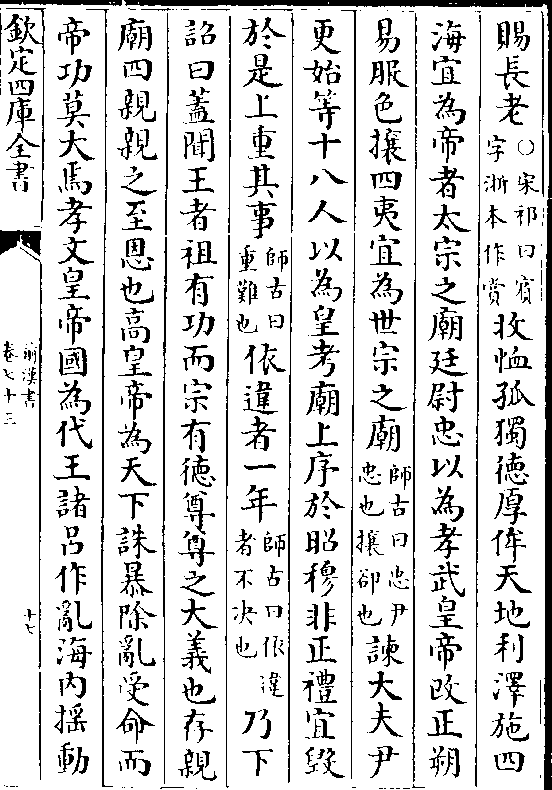 賜長老○宋祁曰賓字浙本作賞收恤孤獨德厚侔天地利澤施四
海宜為帝者太宗之廟廷尉忠以為孝武皇帝改正朔
易服色攘四夷宜為世宗之廟師古曰忠尹忠也攘卻也諫大夫尹
更始等十八人以為皇考廟上序於昭穆非正禮宜毀
於是上重其事師古曰重難也依違者一年師古曰依違者不決也乃下
詔曰蓋聞王者祖有功而宗有德尊尊之大義也存親
廟四親親之至恩也高皇帝為天下誅暴除亂受命而
帝功莫大焉孝文皇帝國為代王諸呂作亂海內揺動
欽定四庫全書
前漢書
卷七十三
十七